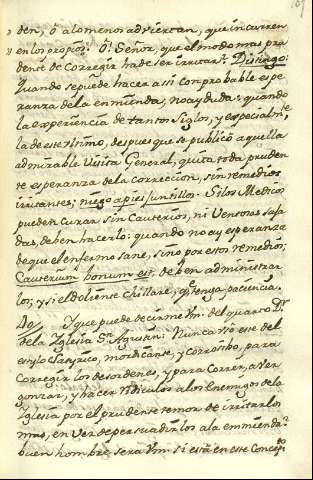 den, ò alomenos adviertan, que incurren
en los propios. O! Señor, que el modo mas pru
dente de corregir ha de ser irritar? Distingo:
Quando se puede hacer asi con probable espe
ranza de la enmienda, no ay duda: quando
la experiencia de tantos Siglos, y especialm.te
la de este ultimo, despues que se publicó aquella
admirable Visita General, quita toda pruden
te esperanza de la correccion, sin remedios
irritantes; niego à pies juntillos. Si los Medicos
pueden curar sin Cauterios, ni Ventosas saja
das, deben hacerlo: quando no ay esperanza
de que el enfermo sane, sino por estos remedios;
Cauterium bonum est, deben administrar
los; y si el doliente chillare, q.e tenga paciencia.
Y que puede decirme Vm. del quarto D.r
de la Iglesia S.n Agustin: Nunca usó ese del
estylo Satyrico, mordicante, y corrosibo, para
corregir los desordenes, y para correr, aver
gonzar, y hacer ridiculos a los Enemigos de la
Iglesia por el prudente temor de irritarlos
mas, en vez de persuadirlos a la enmienda?
buen hombre, sera Vm. si está en ese Concep.to